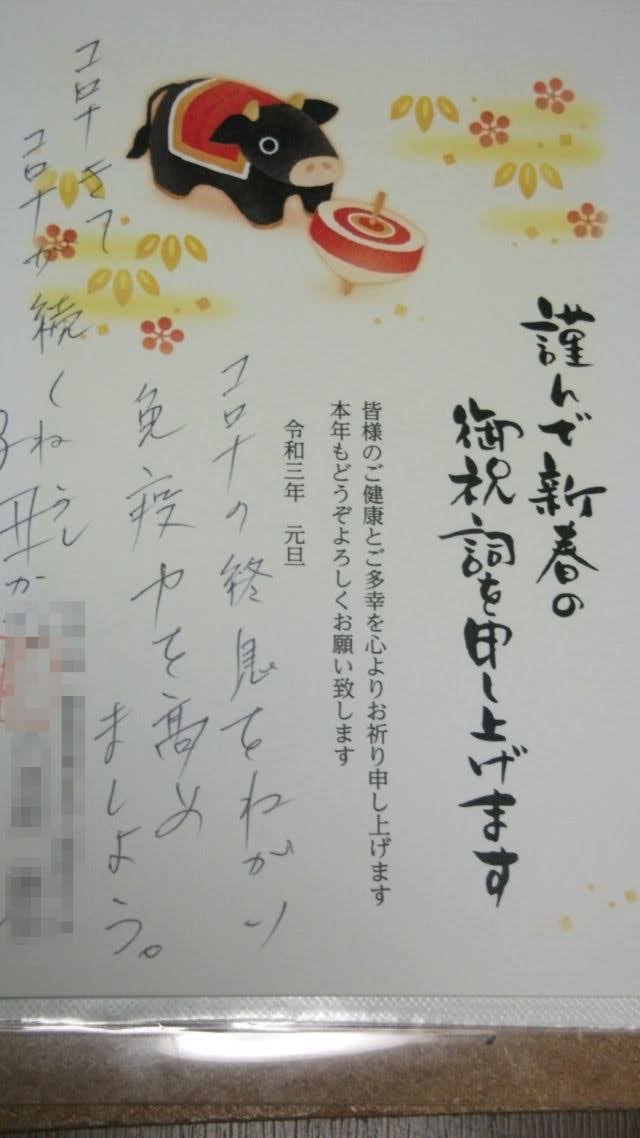 謹んで新春の
御祝詞を申し上げます
皆様のご健康とご多幸を心よりお祈り申し上げます
本年もどうぞよろしくお願い致します
令和三年 元旦
コロナの終息をねがい
免疫力を高め
ましょう。
コロナきて
コロナが続くねうし